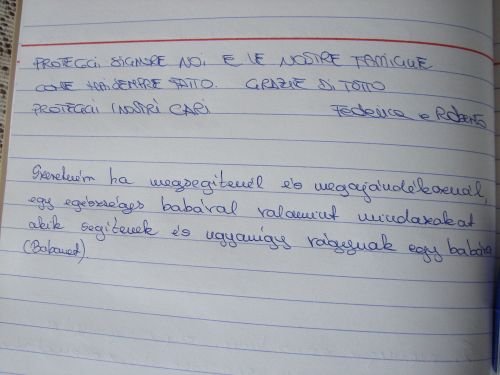 PROTEGGI SIGNORE NOI E LE NOSTRE FAMIGLIE
COME HAI SEMPRE FATTO. GRAZIE DI TUTTO
PROTEGGI I NOSTRI CARI Federica e Roberto
Szeretném ha megsegitenél és megajándékoznál
egy egészséges babával valamint mindazokat
akik segitenek és ugyanígy vágynak egy babára